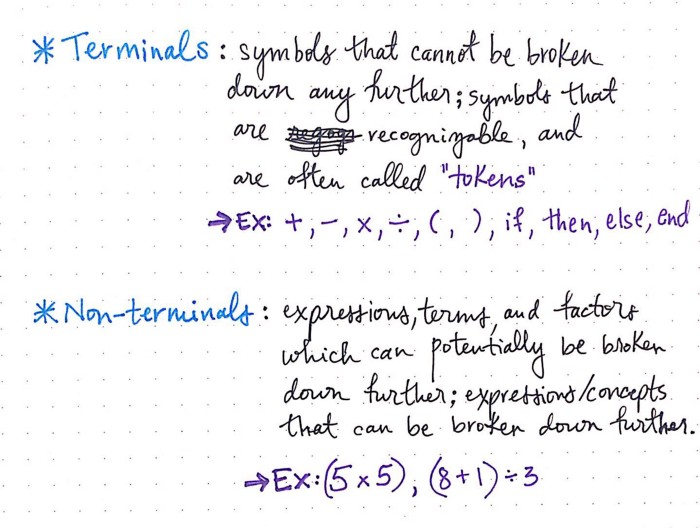 * Terminals: symbols that cannot be broken
down any further; symbols that
are recognizable, and
are often called "tokens"
→ EX: +, -, x, ÷, (, ), if, then, else, end
* Non-terminals: expressions, terms, and factors
which can potentially be broken
down further; expressions/concepts
that can be broken down further.
→ Ex: (5 x 5), (8+1) ÷ 3